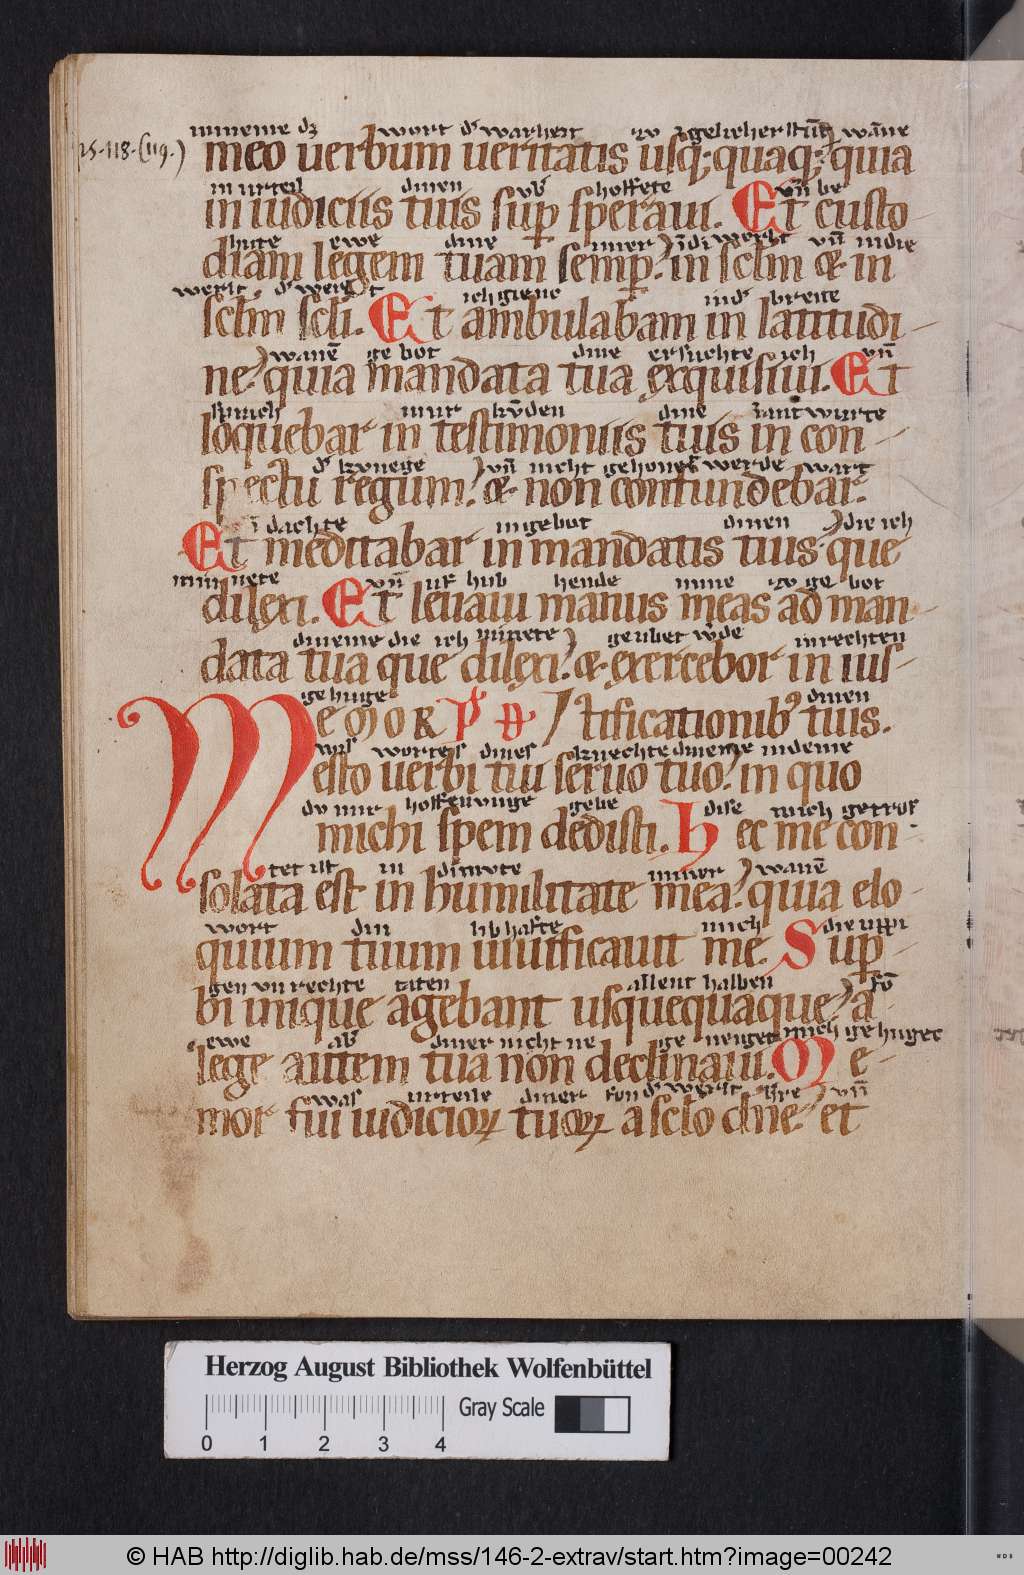 mineme dz wort d' warheit zv gelicher stūt wāne
ps. 118. (119.)
meo uerbum ueritatis usq; quaq;. quia
in urteil dinen vb' hoffete vn̄ be
in iudiciis tuis sup speraui. Et custo
hute ewe dine imer in di werlt vn̄ indie
diam legem tuam semp. in sclm & in
werlt d' werlt ich gienc ind' breite
scłm scli. Et ambulabam in latitudi-
wanē ge bot dine ersuchte ich vn̄
ne. quia mandata tua exquisiui. Et
sprach mit kvnden dine antwurte
loquebar in testimoniis tuis in con-
d' kvnege vn̄ nicht gehonet werde wart
spectu regum. & non confundebar.
dachte ingebot dinen die ich
Et meditabar in mandatis tuis. que
minnete vn̄ uf hub hende mine zo ge bot
dilexi. Et leuaui manus meas ad man-
dineme die ich minnete geubet wde inrechten
data tua que dilexi. & exercebor in ius-
gehuge dinen
MemOR tificationib' tuis.
wis wortes dines knechte dineme indeme
esto uerbi tui seruo tuo. in quo
du mir hoffenunge gebe dise mich getros
michi spem dedisti. Hec me con-
tet ist in dimvte miner wanē
solata est in humilitate mea. quia elo-
wort din libhafte mich die uppi
quium tuum uiuificauit me. Sup-
gen vn rechte taten allent halben fō
bi inique agebant usquequaque. a-
ewe ab' diner nicht ne ge neiget mich gehuget
lege autem tua non declinaui. Me-
was urteile diner fon d' werlt hre vn̄
mor fui iudicioꝝ tuoꝝ a sclo dn̄e. et
Herzog August Bibliothek Wolfenbüttel
Gray Scale
0 1 2 3 4
© HAB http://diglib.hab.de/mss/146-2-extrav/start.htm?image=00242